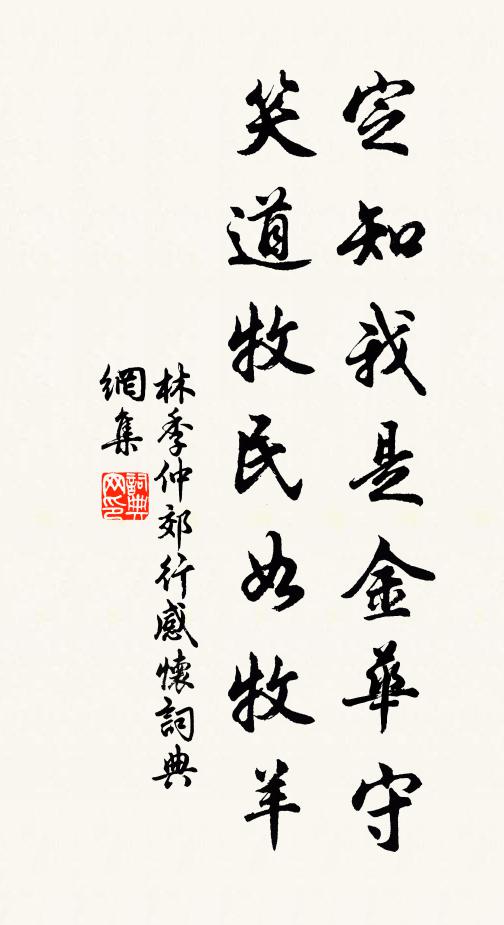 定知我是金華守
笑道牧民如牧羊
林季仲郊行感懷詞典
網集
詞典
网印